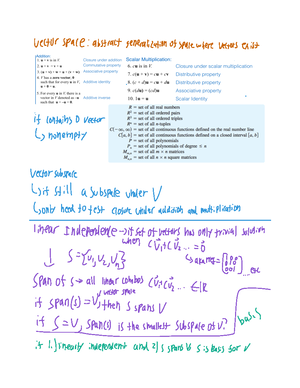 Vector Space: abstract generalization of space where vectors exist
Addition
1. u + v is in V. Closure under addition
2. u + v = v + u Commutative property
3. (u + v) + w = u + (v + w) Associative property
4. V has a zero vector 0 such that for every u in V, u + 0 = u. Additive identity
5. For every u in V, there is a vector in V denoted by -u such that u + -u = 0. Additive inverse
Scalar Multiplication
6. cu is in V. Closure under scalar multiplication
7. c(u + v) = cu + cv Distributive property
8. (c + d)u = cu + du Distributive property
9. c(du) = (cd)u Associative property
10. 1u = u Scalar identity
if contains 0 vector
↳ nonempty
R = set of all real numbers
R² = set of all ordered pairs
R³ = set of all ordered triples
Rⁿ = set of all n-tuples
C(−∞, ∞) = set of all continuous functions defined on the real number line
C[a, b] = set of all continuous functions defined on a closed interval [a, b]
P = set of all polynomials
Pₙ = set of all polynomials of degree ≤ n
Mₘ,ₙ = set of all m × n matrices
Mₙ,ₙ = set of all n × n square matrices
Vector subspace
↳ if still a subspace under V
↳ only need to test closure under addition and multiplication
linear Independence → if set of vectors has only trivial solution
when
S = {v₁, v₂, vₙ}
Span of S → all linear combos
vector space
if span(S) = V, then S spans V
if S = V, span(S) is the smallest subspace of V.
basis
if 1.) linearly independent and 2.) S spans V S is basis for V